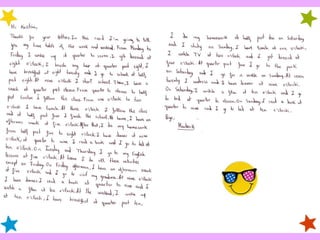 Hi Kristina,
Thanks for your letter. In this mail I'm going to tell
you my time table of the week and weekend. From Monday to
Friday, I wake up at quarter to seven. I get dressed at
eight o'clock. I brush my hair at quarter past eight, I
have breakfast at eight twenty and I go to school at half
past eight. At nine o'clock I start school. Then, I have a
snack at quarter past eleven. From quarter to eleven to half
past twelve I follow the class. From one o'clock to two
o'clock I have lunch. At three o'clock I follow the class
and at half past four I finish the school. At home, I have an
afternoon snack at five o'clock. After that, I do my homework
from half past five to eight o'clock. I have dinner at nine
o'clock, at quarter to nine I read a book and I go to bed at
ten o'clock. On Tuesday and Thursday I go to my English
lessons at five o'clock. At home I do all these activities
except on Friday. On Friday afternoon, I have an afternoon snack
at five o'clock and I go to visit my grandma. At nine o'clock
I have dinner. I read a book at quarter to nine and I
watch a film at ten o'clock. At the weekend, I wake up
at ten o'clock, I have breakfast at quarter past ten,
I do my homework at half past ten on Saturday
and I study on Sunday. I have lunch at one o'clock.
I watch TV at two o'clock and I get dressed at
four o'clock. At quarter past four I go to the park
on Saturday and I go for a walk on Sunday. At seven
twenty I
and I have dinner at nine o'clock.
On Saturday, I watch a film at ten o'clock and I go
to bed at quarter to eleven. On Sunday I read a book at
quarter to nine and I go to bed at ten o'clock.
Bye,